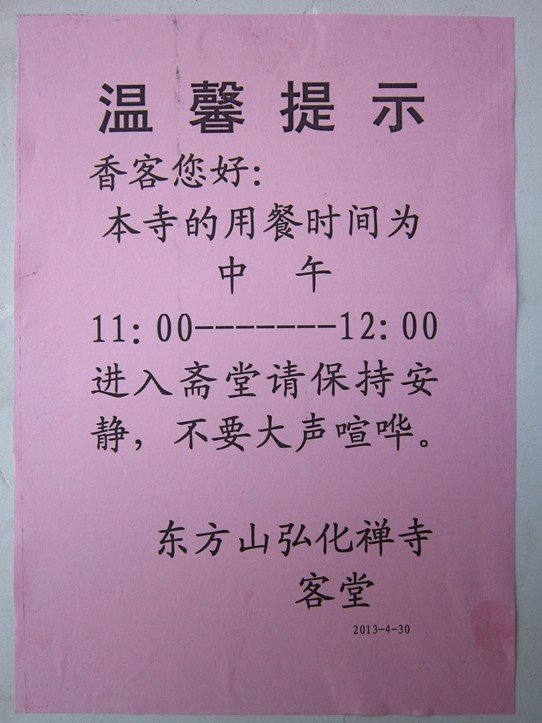 温馨提示
香客您好:
本寺的用餐时间为
中 午
11:00-------12:00
进入斋堂请保持安
静，不要大声喧哗。
东方山弘化禅寺
客堂
2013-4-30